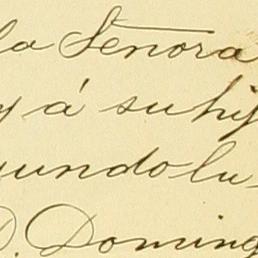 la Señora
y á su hij
gundo lu-
D. Doming